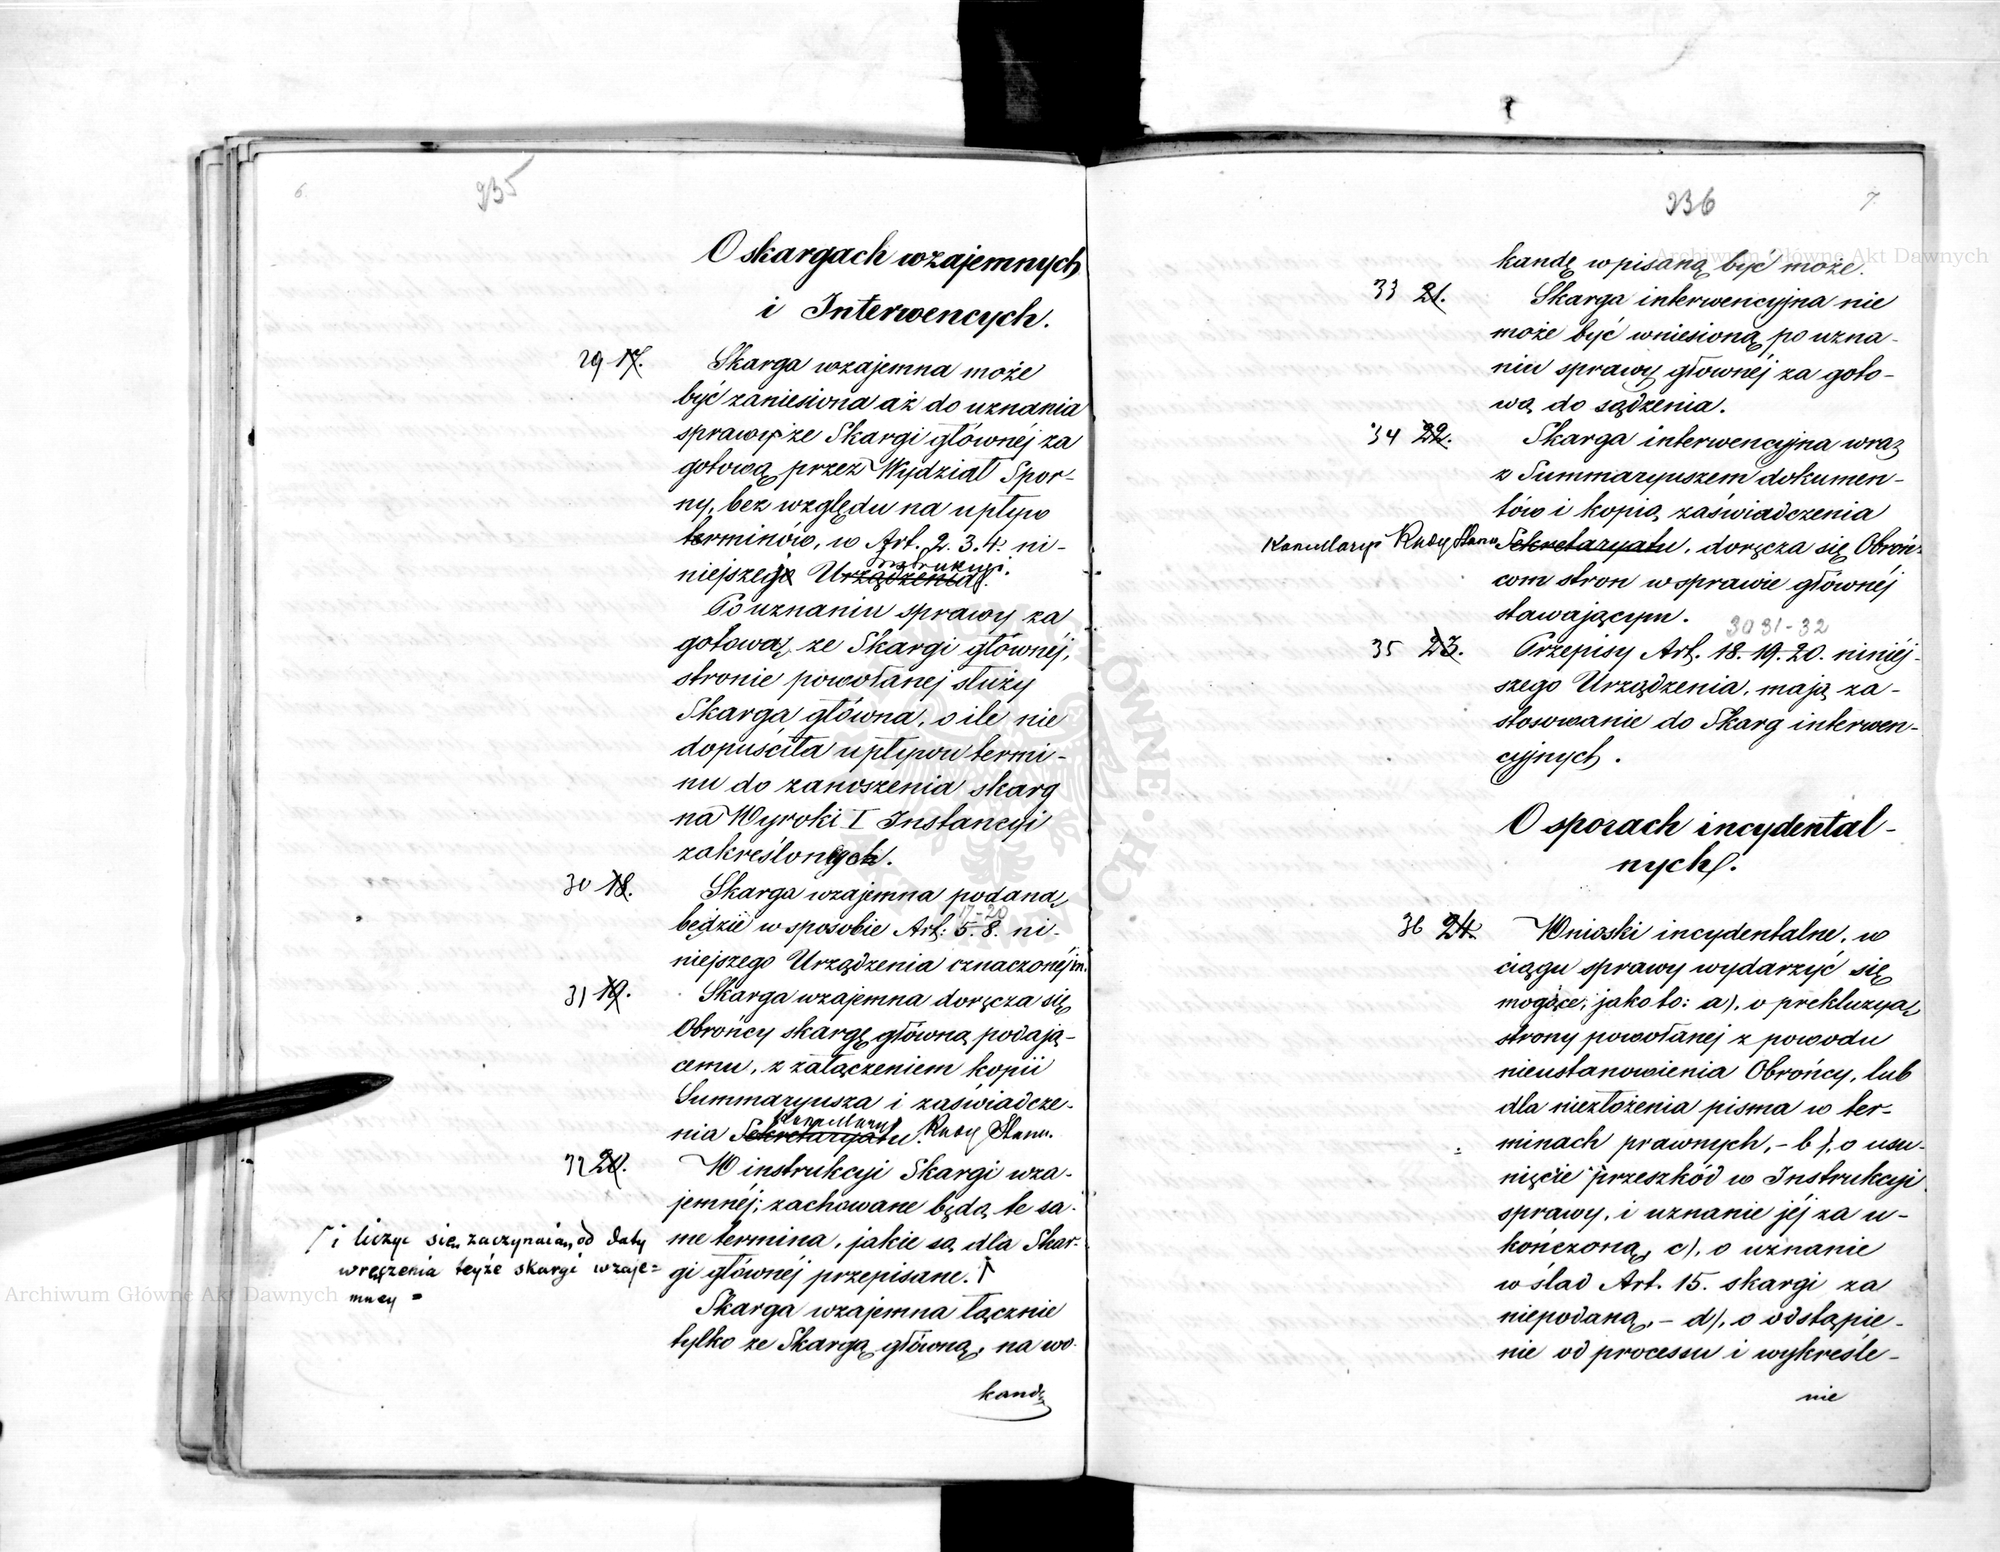 6.
935
O skargach wzajemnych
i Interwencych.
29 17. Skarga wzajemna może
być zaniesiona aż do uznania
sprawy ze Skargi głównéj za
gotową przez Wydział Spor-
ny, bez względu na upływ
terminów, w Art. 2. 3. 4. ni-
Instrukcyi.
niejszego Urządzenia.
Po uznaniu sprawy za
gotową ze Skargi głównéj,
stronie powołanej służy
Skarga główna, o ile nie
dopuściła upływu termi-
nu do zanoszenia skarg
na Wyroki I Instancyi
zakreślonych.
30 18. Skarga wzajemna podaną
17-20
będzie w sposobie Art: 5. 8. ni-
niejszego Urządzenia oznaczonéjm.
31 19. Skarga wzajemna doręcza się
Obrońcy skargę główną podają-
cemu, z załączeniem kopii
Summaryusza i zaświadcze-
Kancellaryi
nia Sekretaryatu. Rady Stanu.
32 20. W instrukcyi Skargi wza-
jemnéj, zachowane będą te sa-
me termina, jakie są dla Skar-
gi głównéj przepisane.
i liczyć się zaczynaią od daty
wręczenia teyże skargi wzaje=
mney =
Skarga wzajemna łącznie
tylko ze Skargą główną, na wo-
kandę
936
7.
kandę wpisaną być może.
33 21. Skarga interwencyjna nie
może być wniesioną po uzna-
niu sprawy głównéj za goto-
wą do sądzenia.
34 22. Skarga interwencyjna wraz
z Summaryuszem dokumen-
tów i kopią zaświadczenia
Kancellaryi Rady Stanu Sekretaryatu, doręcza się Obroń-
com stron w sprawie głównéj
stawającym.
30 31-32
35 23. Przepisy Art. 18. 19. 20. niniéj-
szego Urządzenia, mają za-
stosowanie do Skarg interwen-
cyjnych.
O sporach incydental-
nych.
36 24. Wnioski incydentalne, w
ciągu sprawy wydarzyć się
mogące, jako to: a), o prekluzyą
strony powołanej z powodu
nieustanowienia Obrońcy, lub
dla niezłożenia pisma w ter-
minach prawnych, - b), o usu-
nięcie przeszkód w Instrukcyi
sprawy, i uznanie jéj za u-
kończoną, c), o uznanie
w ślad Art. 15. skargi za
niepodaną, - d), o odstąpie-
nie od processu i wykreśle-
nie
Archiwum Główne Akt Dawnych
Archiwum Główne Akt Dawnych